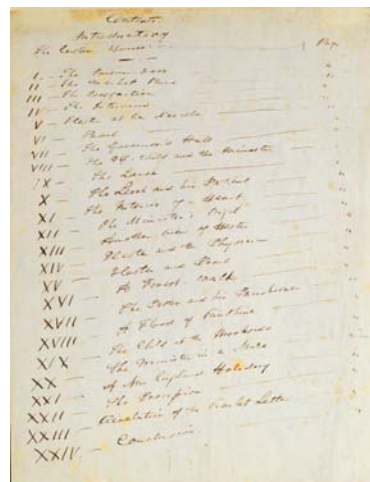 Contents.
Introductory
The Custom House Page
I. - The Prison-Door "
II - The Market Place "
III - The Recognition "
IV - The Interview "
V - Hester at her Needle "
VI - Pearl "
VII - The Governor's Hall "
VIII - The Elf-Child and the Minister "
IX - The Leech "
X - The Leech and his Patient "
XI - The Interior of a Heart "
XII - The Minister's Vigil "
XIII - Another View of Hester "
XIV - Hester and the Physician "
XV - Hester and Pearl "
XVI - A Forest Walk "
XVII - The Pastor and his Parishioner "
XVIII - A Flood of Sunshine "
XIX - The Child at the Brookside "
XX - The Minister in a Maze "
XXI - A New England Holiday "
XXII - The Procession "
XXIII - Revelation of the Scarlet Letter "
XXIV - Conclusion "